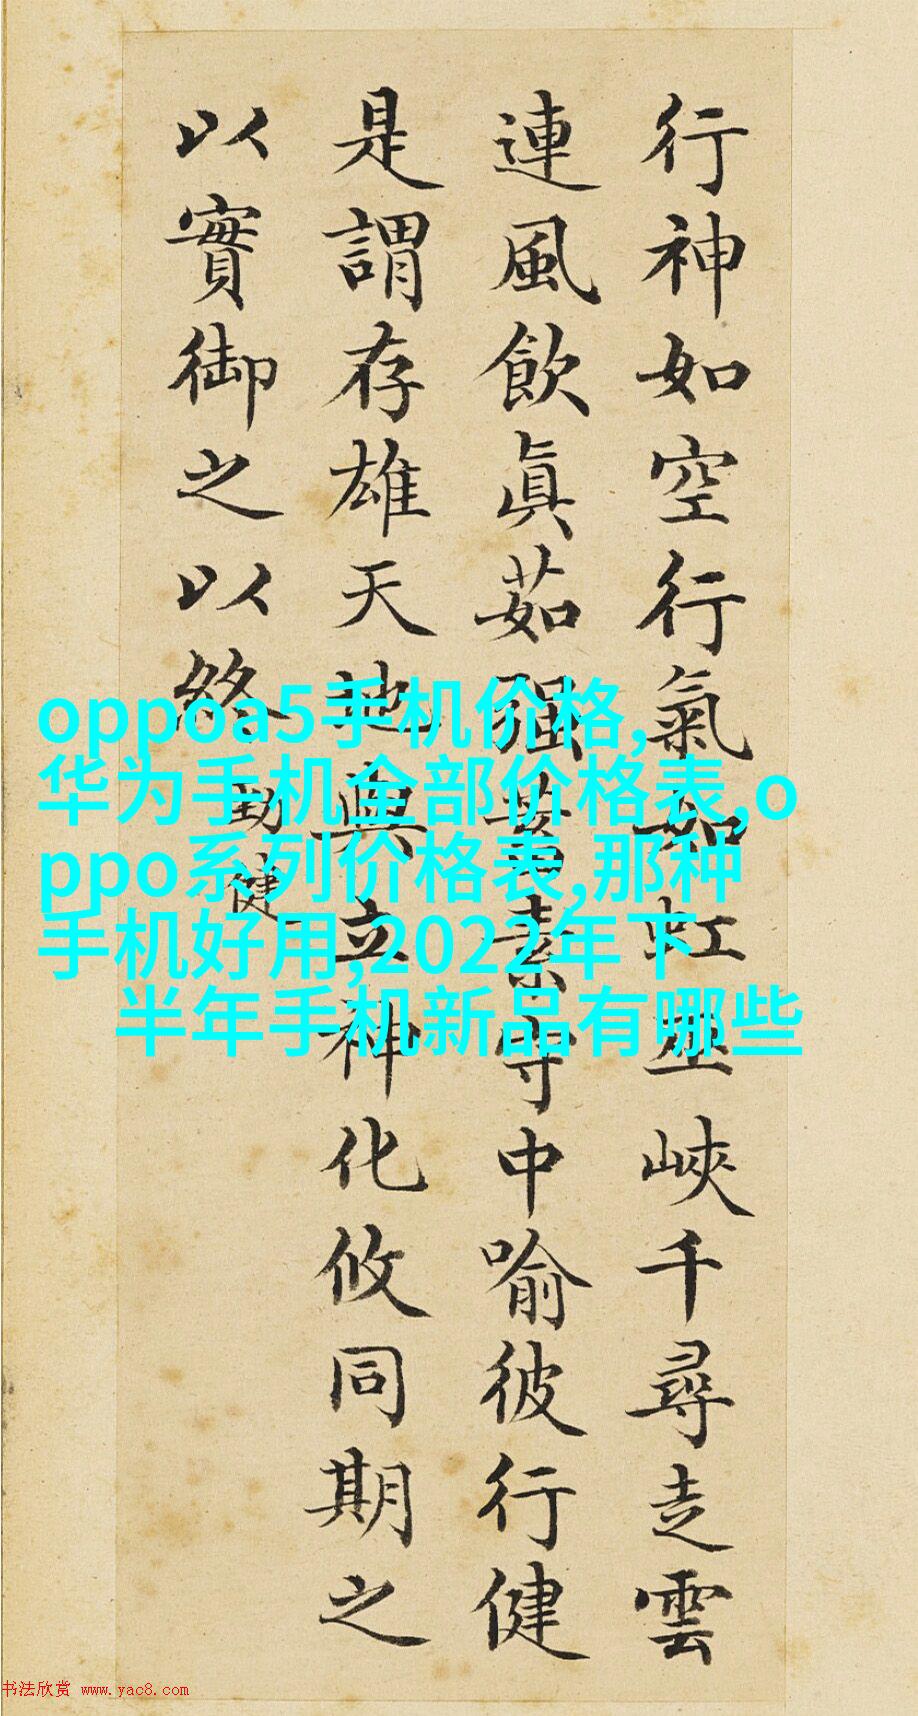 行神如空行氣如虹巫峽千尋走雲
連風飲眞茹强蓄素守中喻彼行健
是謂存雄天地與立神化攸同期之
以實御之以終
勁健
oppoa5手机价格,
华为手机全部价格表,o
ppo系列价格表,那种
手机好用,2022年下
半年手机新品有哪些
书法欣赏 www.yac8.com